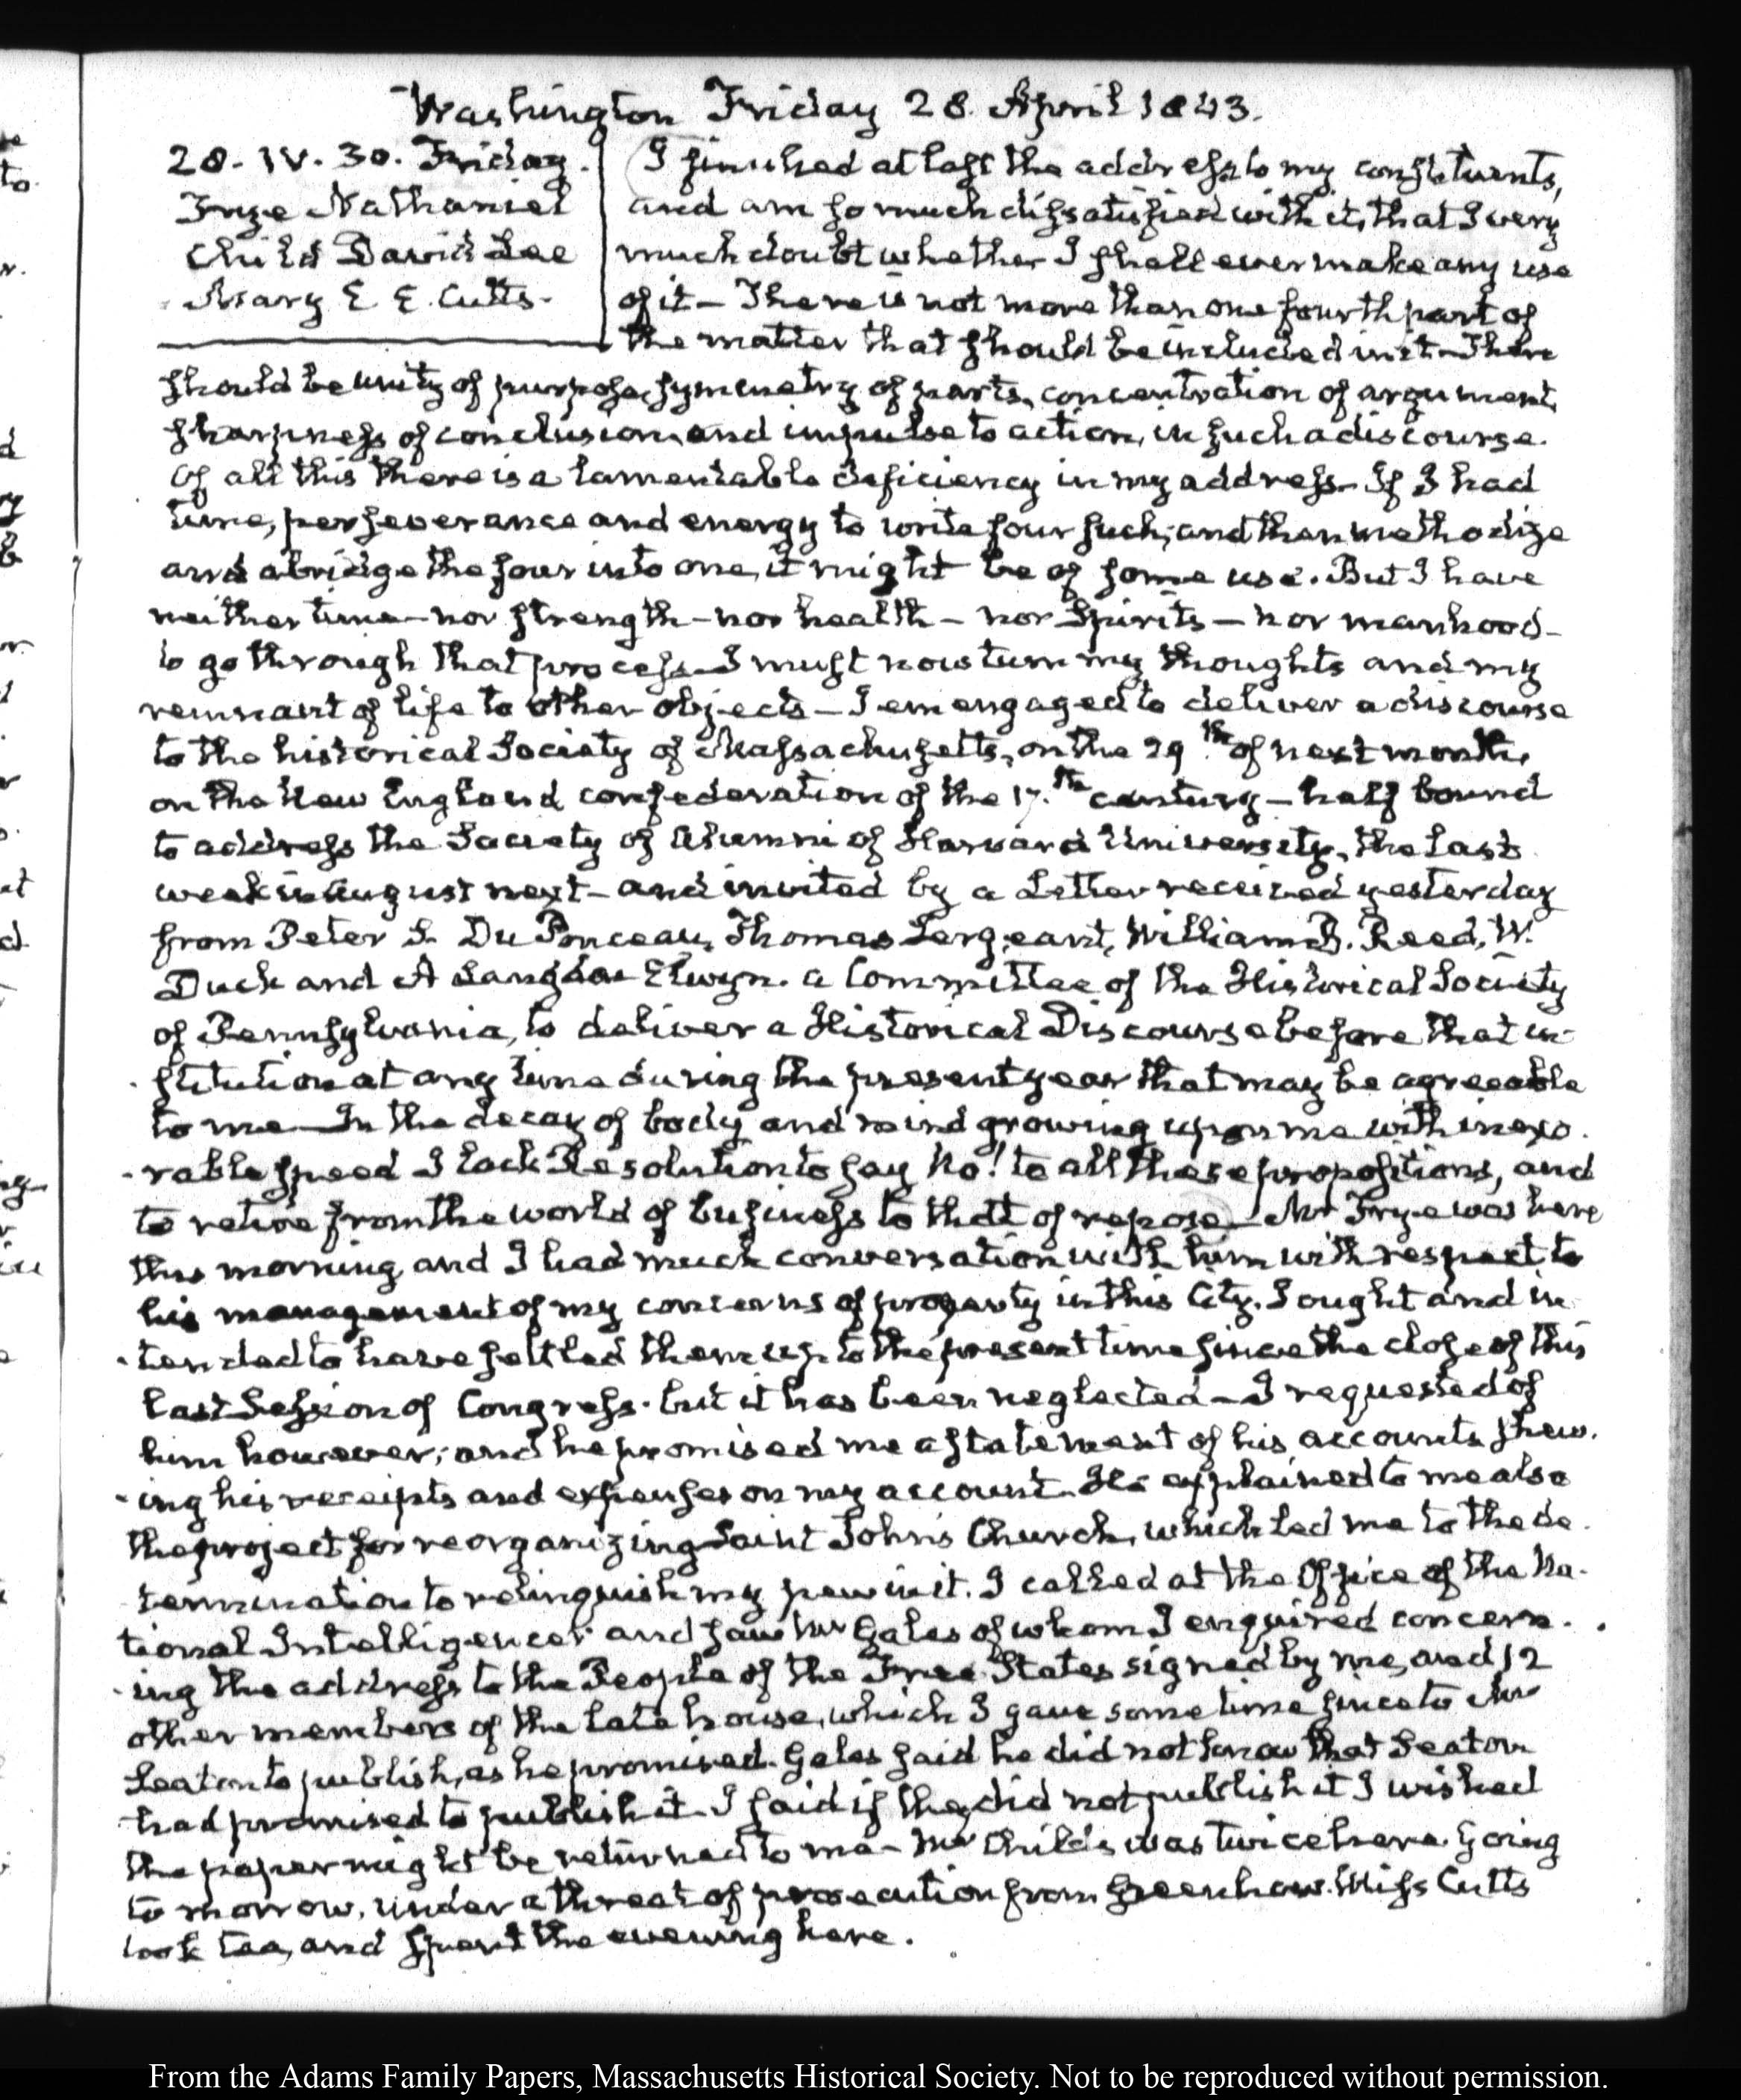 Washington Friday 28. April 1843.
28. IV. 30. Friday.
Frye Nathaniel
Child David Lee
Mary E E. Cutts.
I finished at last the address to my constituents,
and am so much dissatisfied with it, that I very
much doubt whether I shall ever make any use
of it — There is not more than one fourth part of
the matter that should be included in it — There
should be unity of purpose, symmetry of parts, concentration of argument,
sharpness of conclusion, and impulse to action, in such a discourse.
Of all this there is a lamentable deficiency in my address — If I had
time, perseverance and energy to write four such, and then methodize
and abridge the four into one, it might be of some use. But I have
neither time — nor strength — nor health — nor Spirits — nor manhood —
to go through that process — I must now turn my thoughts and my
remnant of life to other objects — I am engaged to deliver a discourse
to the historical Society of Massachusetts, on the 29th. of next month,
on the New England confederation of the 17.th century — half bound
to address the Society of Alumni of Harvard University, the last
week in August next — and invited by a Letter received yesterday
from Peter S. Du Ponceau, Thomas Sergeant, William B. Reed, W.
Duck and A Langdon Elwyn. a Committee of the Historical Society
of Pennsylvania, to deliver a Historical Discourse before that in-
-stitution at any time during the present year that may be agreeable
to me — In the decay of body and mind growing upon me with inexo-
-rable speed I lack Resolution to say No! to all these propositions, and
to retire from the world of business to that of repose — Mr Frye was here
this morning and I had much conversation with him with respect to
his management of my concerns of property in this City. I ought and in-
-tended to have settled them up to the present time since the close of this
last Session of Congress. but it has been neglected — I requested of
him however; and he promised me a statement of his accounts shew-
-ing his receipts and expenses on my account. He explained to me also
the project for reorganizing Saint John's Church, which led me to the de-
-termination to relinquish my pew in it. I called at the Office of the Na-
tional Intelligencer and saw Mr Gales of whom I enquired concern-
-ing the address to the People of the Free States signed by me, and 12
other members of the late house, which I gave some time since to Mr
Seaton to publish, as he promised. Gales said he did not know that Seaton
had promised to publish it — I said if they did not publish it I wished
the paper might be returned to me — Mr Childs was twice here. Going
to morrow, under a threat of prosecution from Greenhow. Miss Cutts
took tea, and spent the evening here.
From the Adams Family Papers, Massachusetts Historical Society. Not to be reproduced without permission.